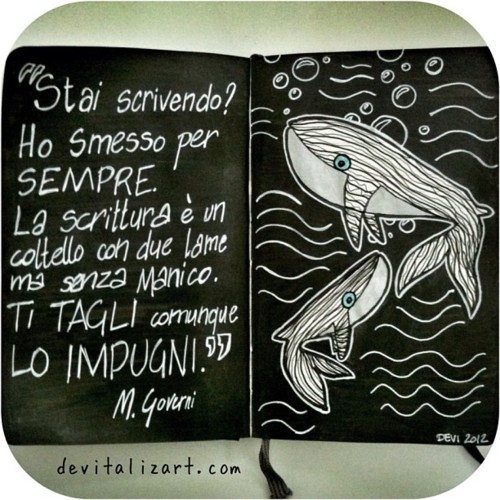 "Stai scrivendo?
Ho smesso per
SEMPRE.
La scrittura è un
coltello con due lame
ma senza manico.
Ti TAGLI comunque
LO IMPUGNI."
M. Governi
DEVI 2012
devitalizart.com